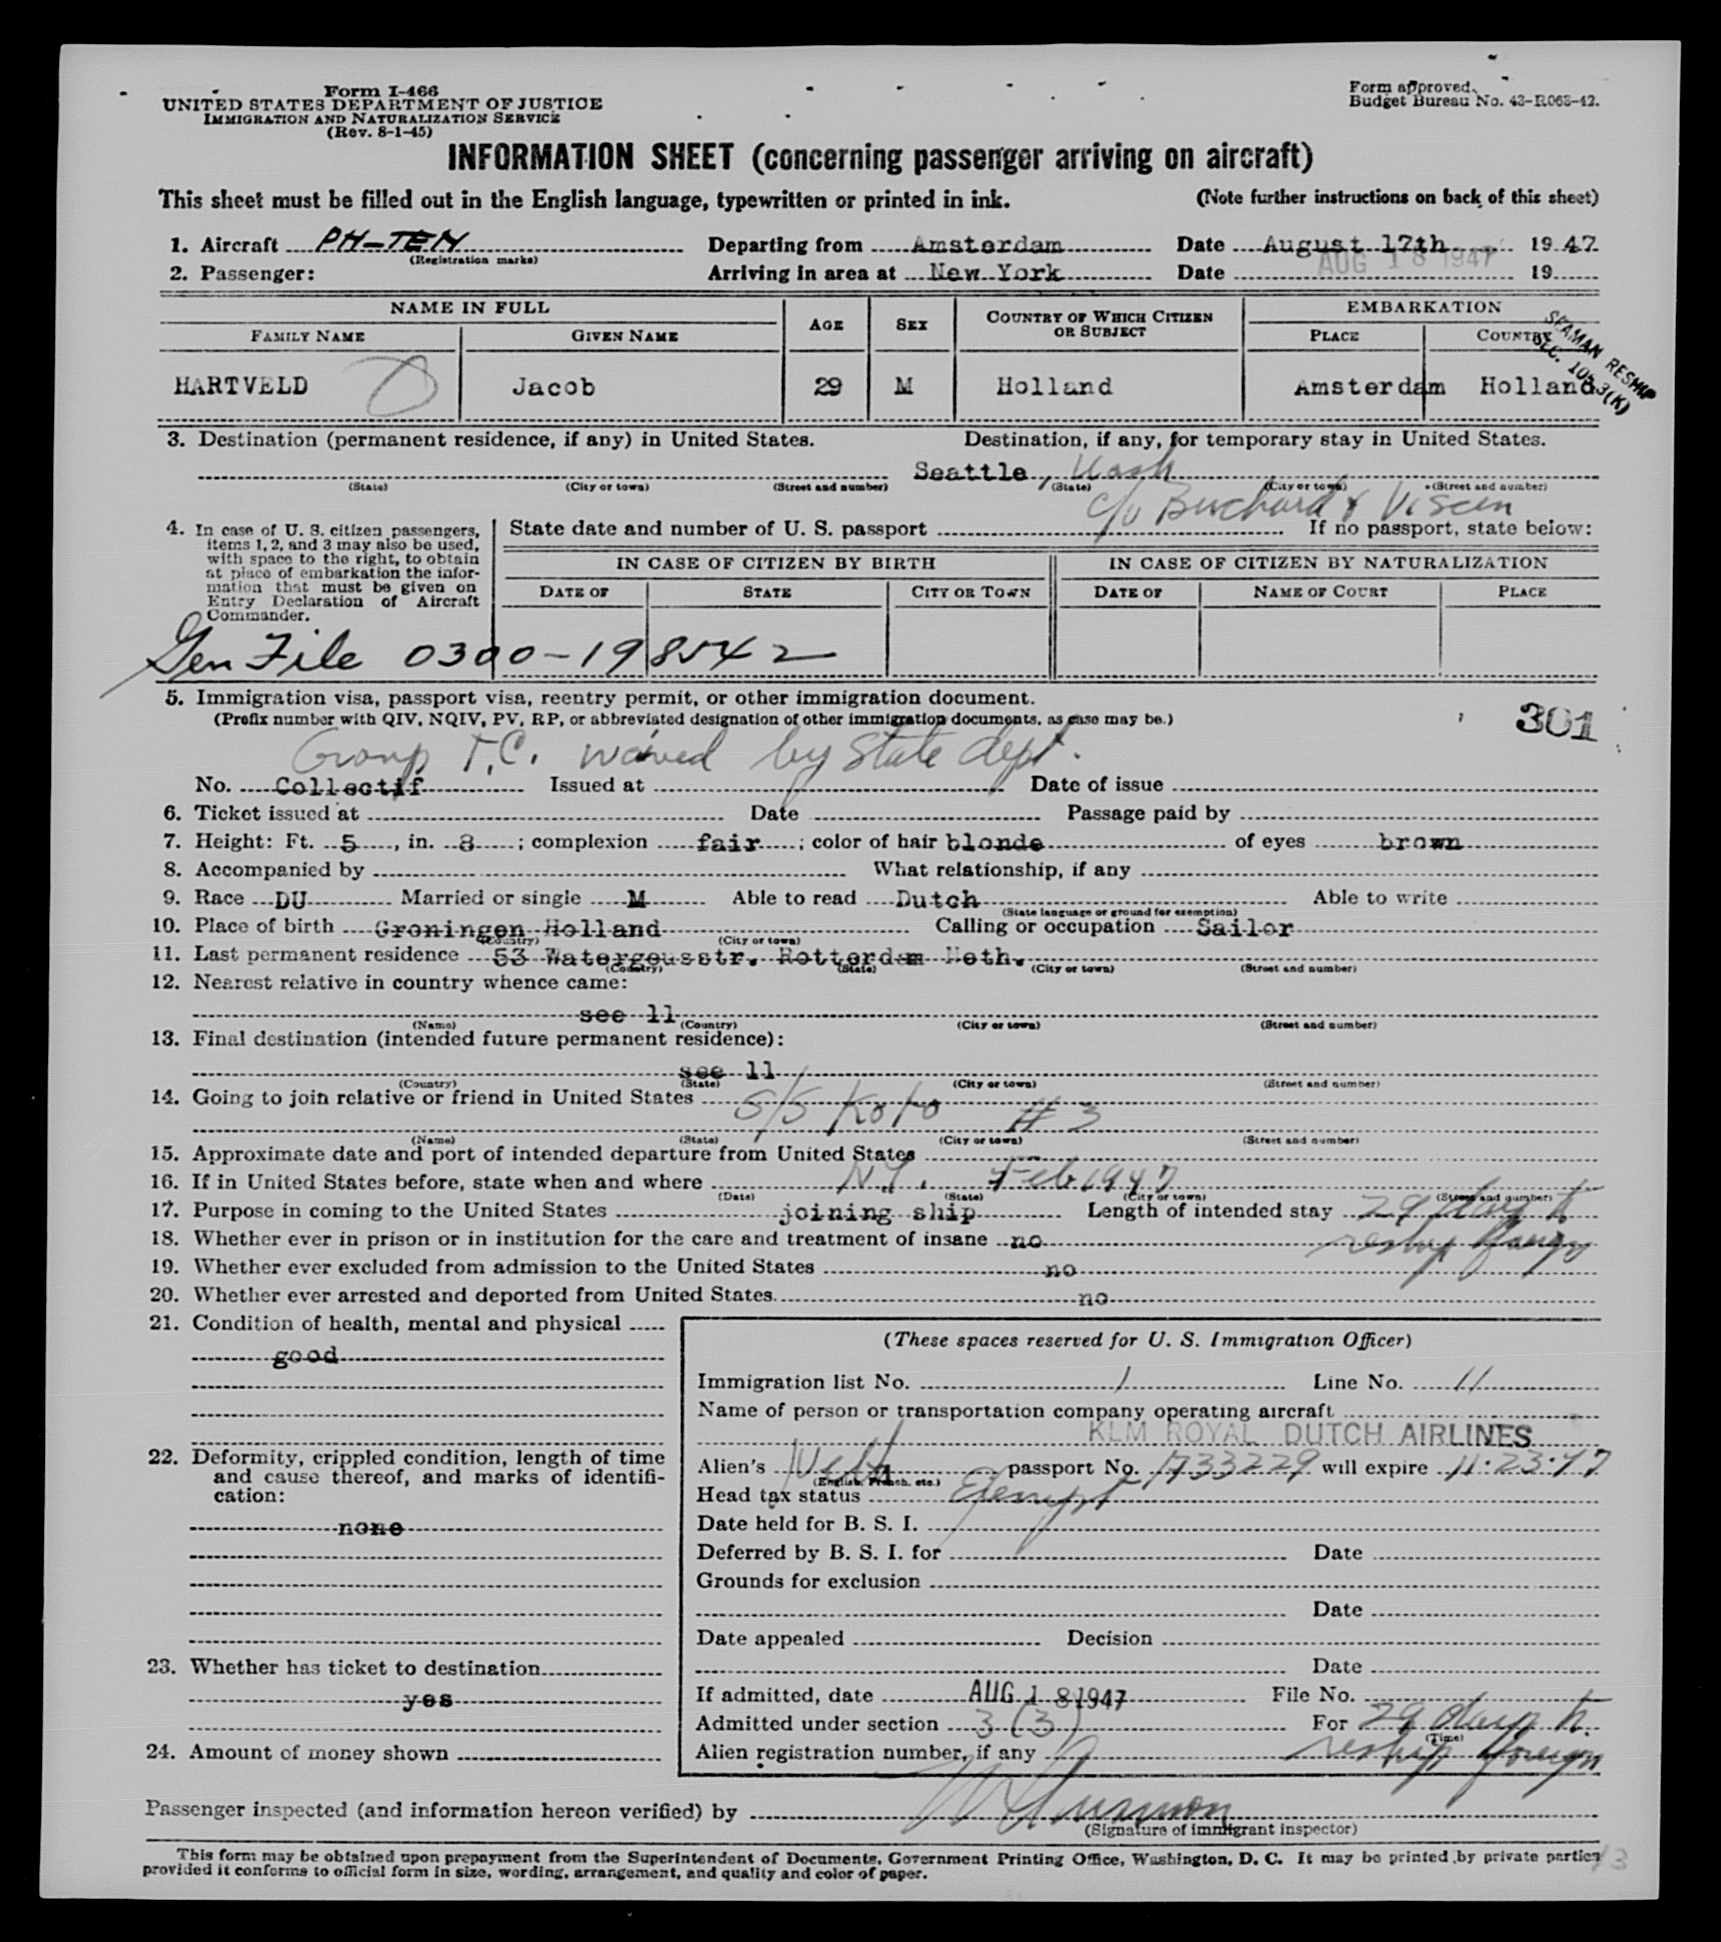 Form I-466
UNITED STATES DEPARTMENT OF JUSTICE
IMMIGRATION AND NATURALIZATION SERVICE
(Rev. 8-1-45)
Form approved.
Budget Bureau No. 43-R063-42.
INFORMATION SHEET (concerning passenger arriving on aircraft)
This sheet must be filled out in the English language, typewritten or printed in ink. (Note further instructions on back of this sheet)
1. Aircraft PH-TEN Departing from Amsterdam Date August 17th 1947
(Registration marks)
2. Passenger: Arriving in area at New York Date AUG 18 1947 19
NAME IN FULL AGE SEX COUNTRY OF WHICH CITIZEN OR SUBJECT EMBARKATION
FAMILY NAME GIVEN NAME PLACE COUNTRY
SEAMAN RESHIP
SEC. 105.3(K)
HARTVELD Jacob 29 M Holland Amsterdam Holland
3. Destination (permanent residence, if any) in United States. Destination, if any, for temporary stay in United States.
Seattle, Wash
(State) (City or town) (Street and number) (State) (City or town) (Street and number)
c/o Burchard &
4. In case of U. S. citizen passengers, items 1, 2, and 3 may also be used, with space to the right, to obtain at place of embarkation the information that must be given on Entry Declaration of Aircraft Commander.
State date and number of U. S. passport If no passport, state below:
IN CASE OF CITIZEN BY BIRTH IN CASE OF CITIZEN BY NATURALIZATION
DATE OF STATE CITY OR TOWN DATE OF NAME OF COURT PLACE
Gen File 0300-198542
5. Immigration visa, passport visa, reentry permit, or other immigration document.
(Prefix number with QIV, NQIV, PV, RP, or abbreviated designation of other immigration documents, as case may be.)
301
Group T.C. waived by State dept.
No. Collectif Issued at Date of issue
6. Ticket issued at Date Passage paid by
7. Height: Ft. 5, in. 8; complexion fair; color of hair blonde of eyes brown
8. Accompanied by What relationship, if any
9. Race DU Married or single M Able to read Dutch Able to write
(State language or ground for exemption)
10. Place of birth Groningen Holland Calling or occupation Sailor
(Country) (City or town)
11. Last permanent residence 53 Watergeusstr. Rotterdam Neth.
(Country) (State) (City or town) (Street and number)
12. Nearest relative in country whence came:
see 11
(Name) (Country) (City or town) (Street and number)
13. Final destination (intended future permanent residence):
see 11
(Country) (State) (City or town) (Street and number)
14. Going to join relative or friend in United States
S/S Koto #3
(Name) (State) (City or town) (Street and number)
15. Approximate date and port of intended departure from United States
16. If in United States before, state when and where N.Y. Feb 1947
(Date) (State) (City or town) (Street and number)
17. Purpose in coming to the United States joining ship Length of intended stay 29 days to
reship foreign
18. Whether ever in prison or in institution for the care and treatment of insane no
19. Whether ever excluded from admission to the United States no
20. Whether ever arrested and deported from United States no
21. Condition of health, mental and physical
good
22. Deformity, crippled condition, length of time and cause thereof, and marks of identification:
none
23. Whether has ticket to destination
yes
24. Amount of money shown
(These spaces reserved for U. S. Immigration Officer)
Immigration list No. 1 Line No. 11
Name of person or transportation company operating aircraft
KLM ROYAL DUTCH AIRLINES
Alien's Neth passport No. 1733229 will expire 11-23-47
(English, French, etc.)
Head tax status Exempt
Date held for B. S. I.
Deferred by B. S. I. for Date
Grounds for exclusion
Date
Date appealed Decision
Date
If admitted, date AUG 18 1947 File No.
Admitted under section 3(3) For 29 days to
(Time)
reship foreign
Alien registration number, if any
Passenger inspected (and information hereon verified) by
(Signature of immigrant inspector)
This form may be obtained upon prepayment from the Superintendent of Documents, Government Printing Office, Washington, D. C. It may be printed by private parties
provided it conforms to official form in size, wording, arrangement, and quality and color of paper.